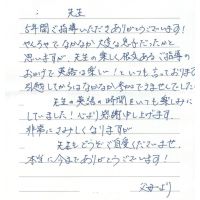 先生
5年間ご指導いただきありがとうございます!
やんちゃでなかなか大変な息子だったかと
思いますが、先生の楽しく根気あるご指導の
おかげで英語は楽しい!といつも言っておりました
引越してからはなかなか参加できませんでした
先生の英語の時間をいつも楽しみに
していました!心より感謝申し上げます
非常にさみしくなりますが
先生もどうぞご自愛くださいませ
本当に今までありがとうございます!
父母より